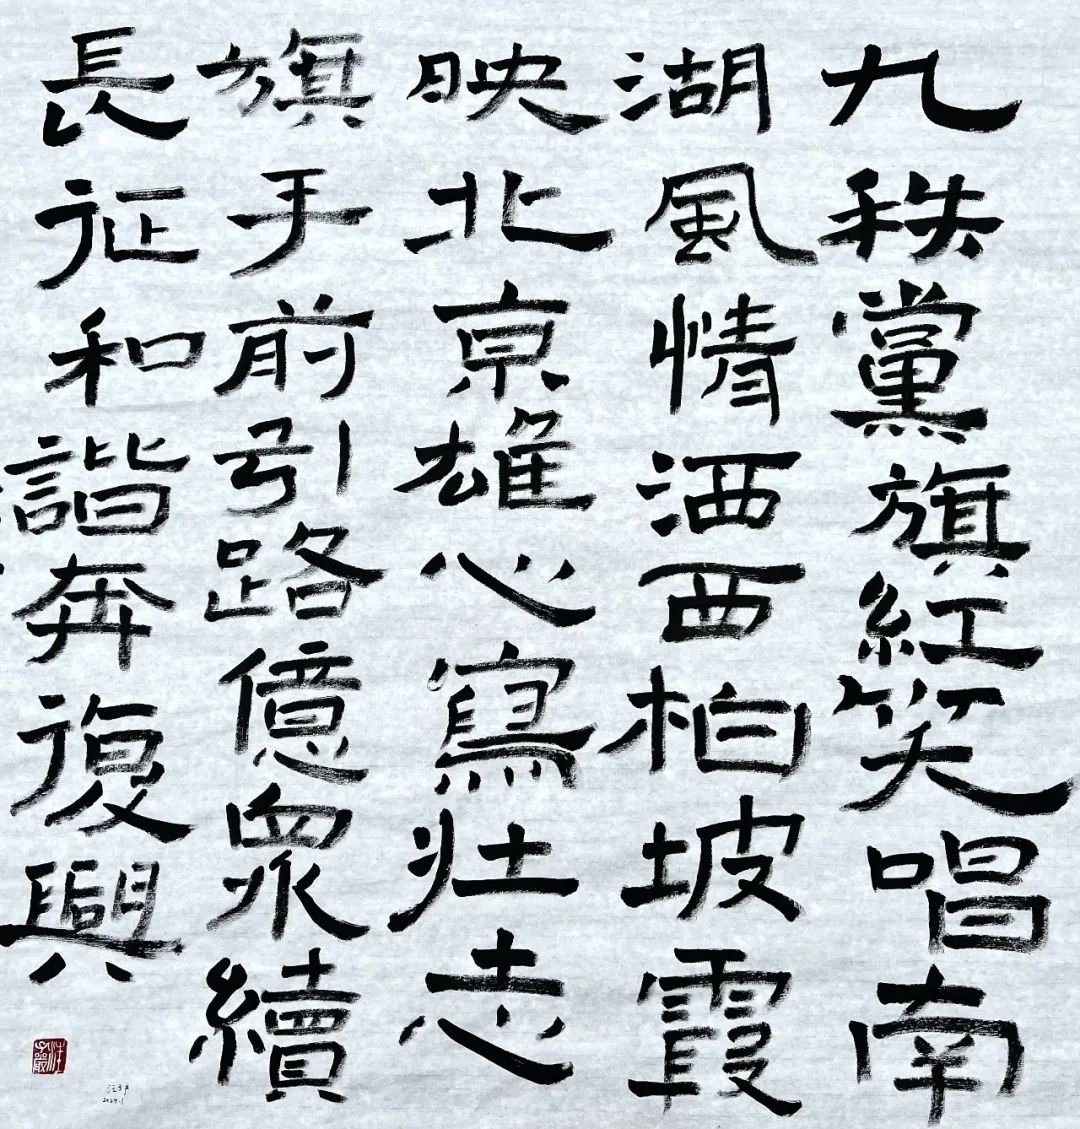 九秩黨旗紅笑唱南
湖風情洒西柏坡霞
映北京雄心寫壯志
旗手前引路億眾續
長征和諧奔復興
2024.1